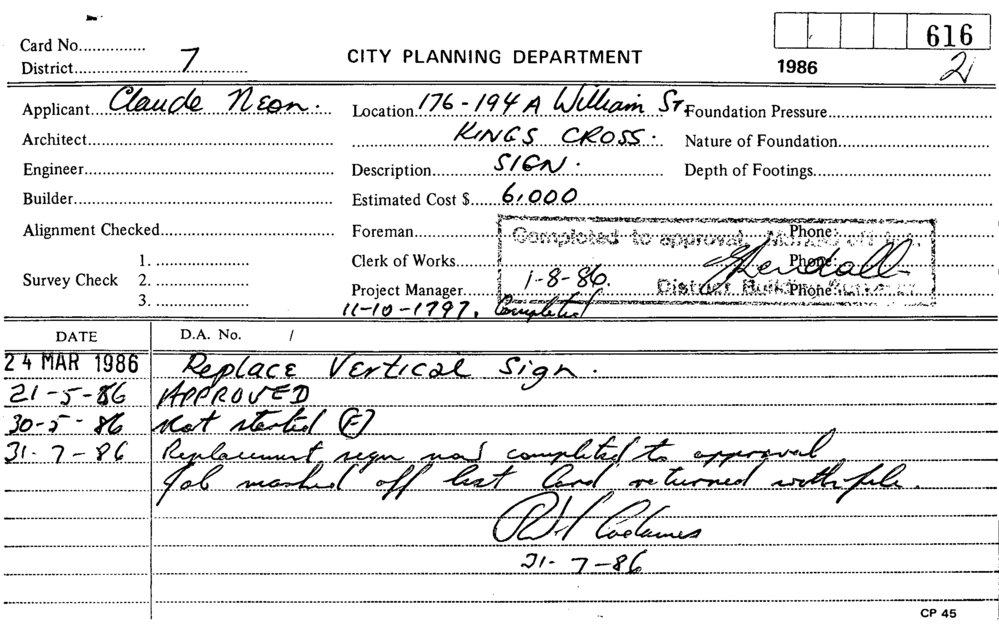 Card No...............
District........7...............
CITY PLANNING DEPARTMENT
616
1986
2
Applicant...Claude Neon.
Location 176-194A William St,
Foundation Pressure
Architect
KINGS CROSS.
Nature of Foundation
Engineer
Description SIGN.
Depth of Footings
Builder
Estimated Cost $ 6,000
Alignment Checked
Foreman
Phone:
Completed to approval,
Survey Check
1.
2.
3.
Clerk of Works
Phone:
Project Manager
1-8-86.
Phone
District
11-10-1797. Completed
DATE
D.A. No. /
24 MAR 1986 Replace Vertical Sign.
21-5-86 APPROVED
30-5-86 Not started (F)
31-7-86 Replacement sign now completed to approval
Job marked off list Card returned with file.
31-7-86
CP 45